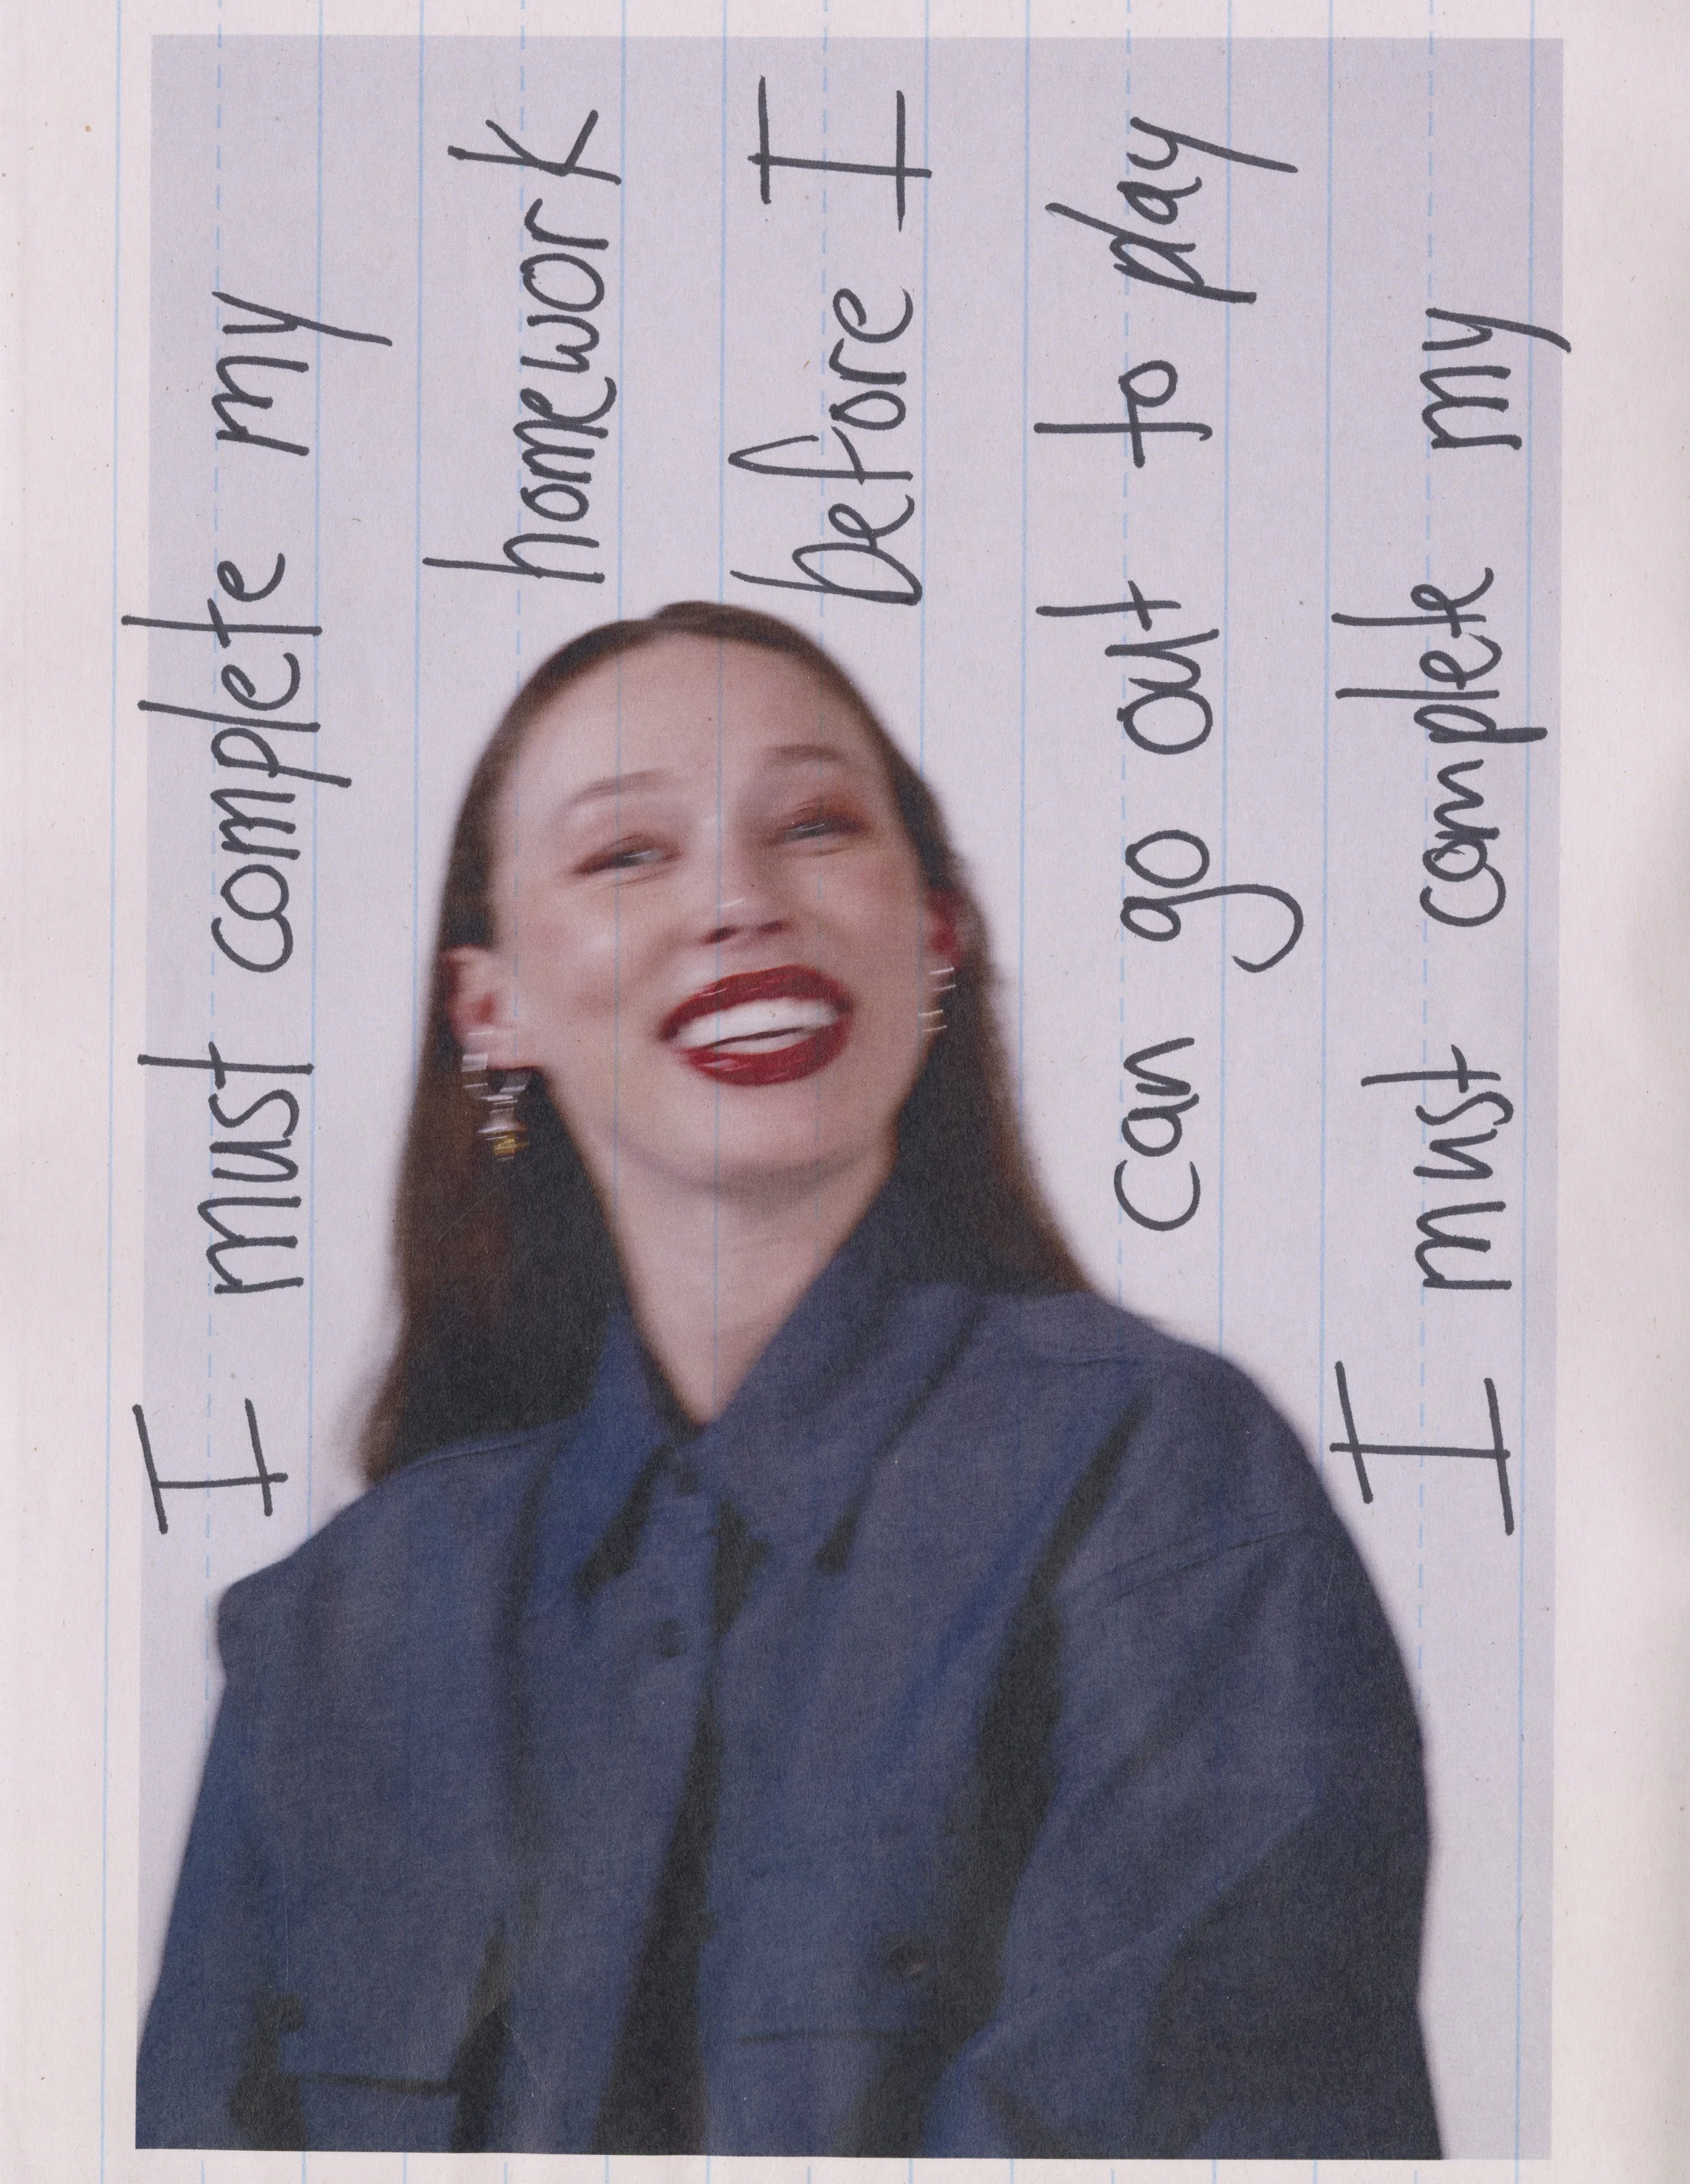 I must complete my
homework
before I
can go out to play
I must complete my